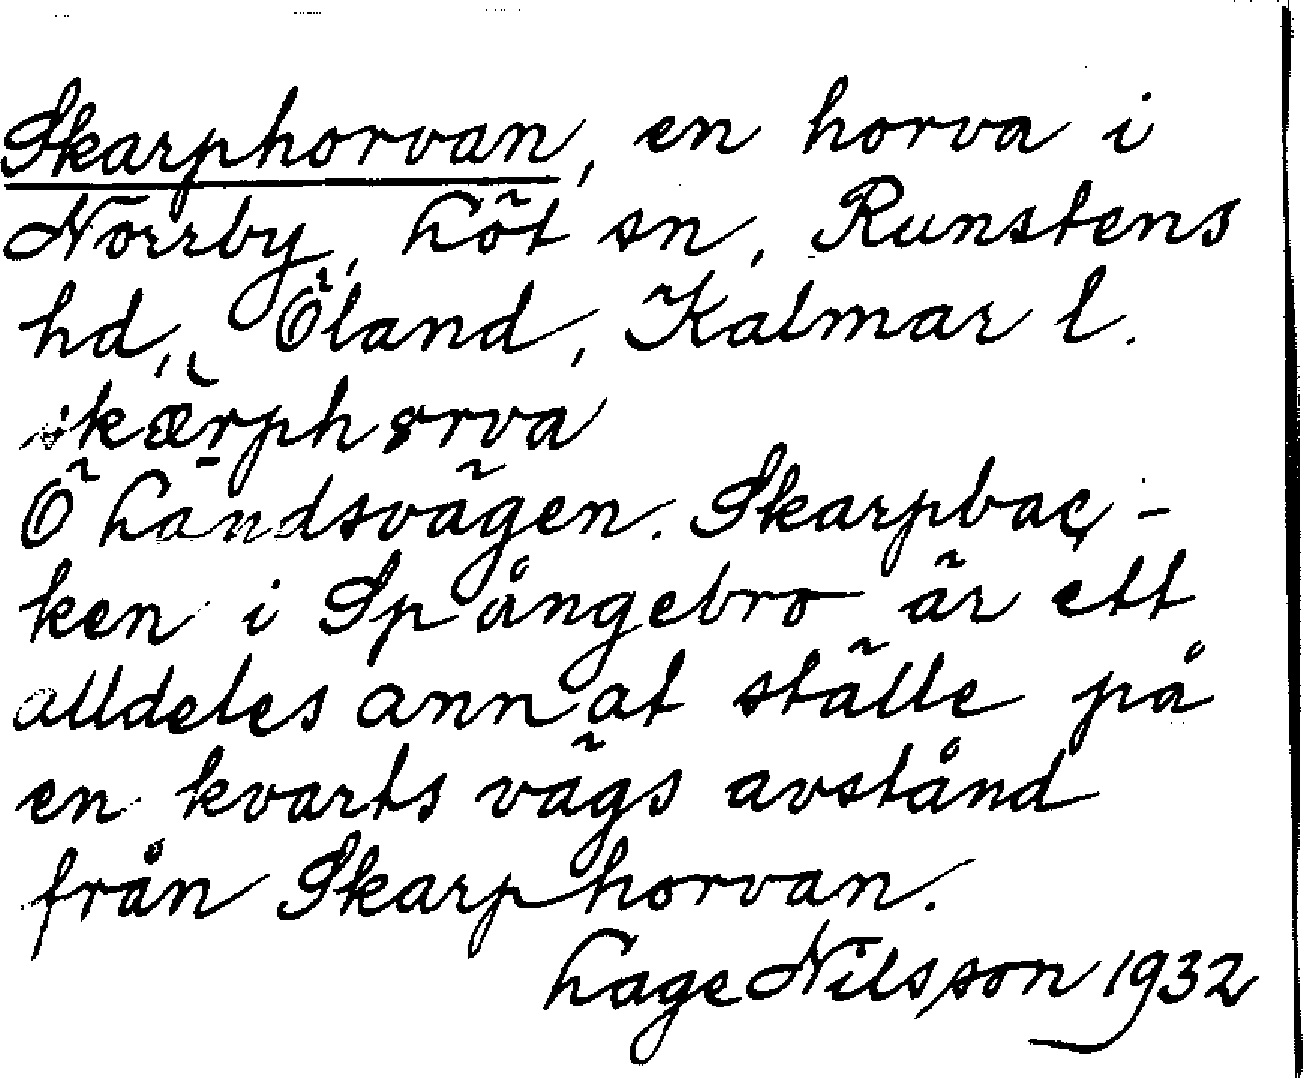 Skarphorvan, en horva i
Norrby, Löt sn, Runstens
hd, Öland, Kalmar l.
skærphorva
Ö Landsvägen. Skarpbac-
ken i Spångebro är ett
alldeles annat ställe på
en kvarts vägs avstånd
från Skarphorvan.
Lage Nilsson 1932